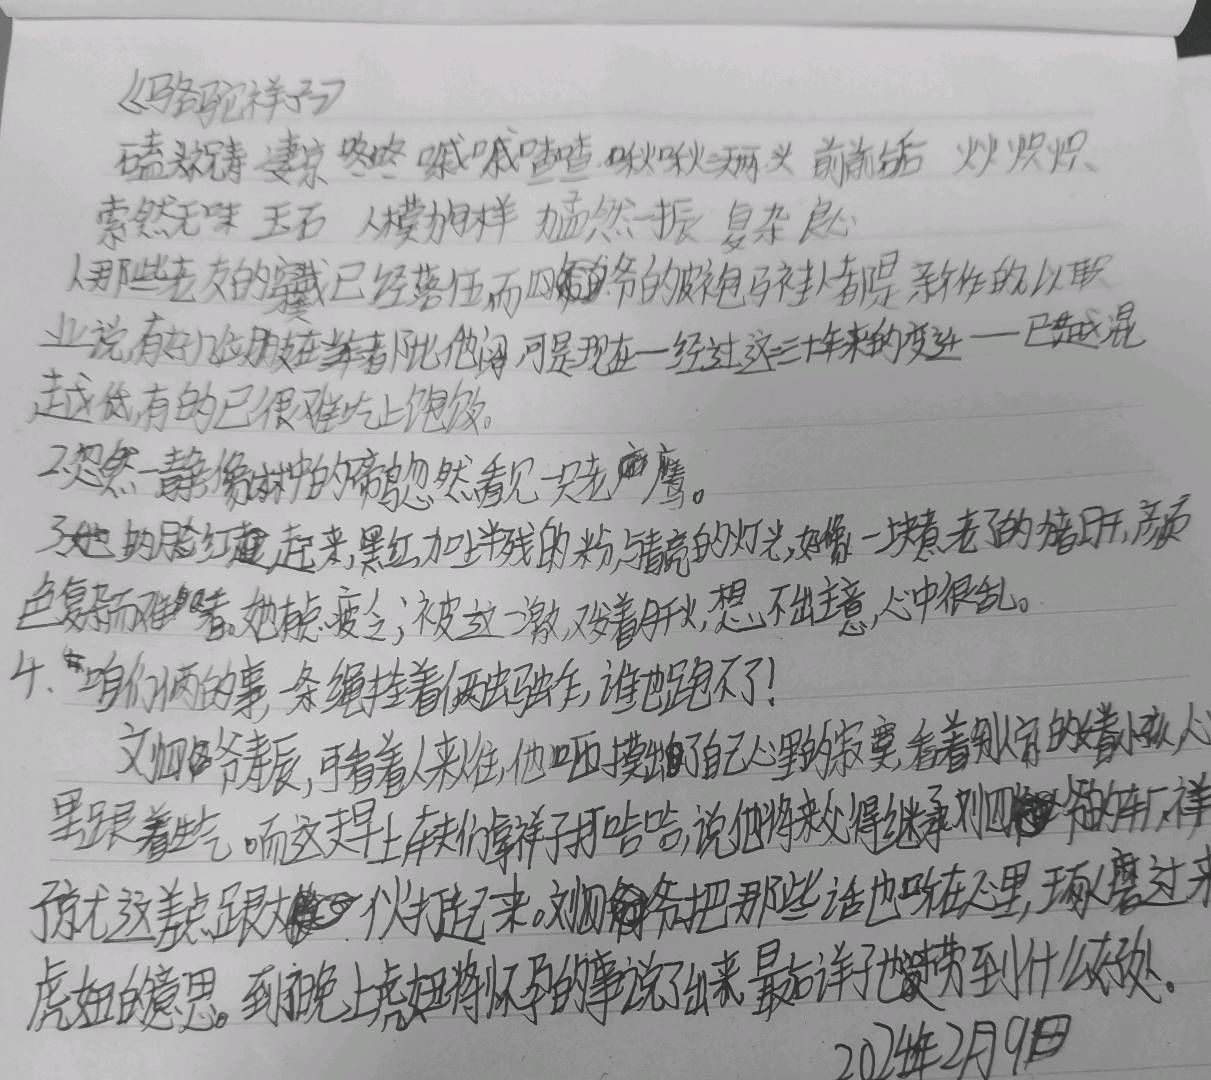 《骆驼祥子》
凄凉 咚咚 嘁嘁喳喳 啾啾 两头 前前后后
索然无味 玉石 人模狗样 猛然一振 复杂 良心
人那些老友的穿戴已经落伍,而四爷的皮袍马褂都是新作的。以职
业说,有好几位朋友在当年都比他阔,可是现在—经过这二三十年来的变迁——已越混
越低,有的已很难吃上饱饭。
2.忽然一静,像林中的啼鸟忽然看见一只老鹰。
3.她的脸红起来,黑红,加上半残的粉,与青亮的灯光,好像一块煮老了的猪肝,颜
色复杂而难看。她有点疲乏;被这一激,又发着肝火,想不出主意,心中很乱。
4.咱们俩的事,一条绳拴着俩蚂蚱,谁也跑不了!
刘四爷寿辰,可看着人来人往,他咂摸出了自己心里的寂寞,看着别人家的小孩,心
里跟着生气。而这天早上车夫们拿祥子打哈哈,说他将来必得继承刘四爷的车厂,祥
子就这差点跟大伙打起来。刘四爷把那些话也听在心里,琢磨过来
虎妞的意思。到夜晚上虎妞将怀孕的事说了出来,最后祥子也没带到什么好处。
2024年2月9日